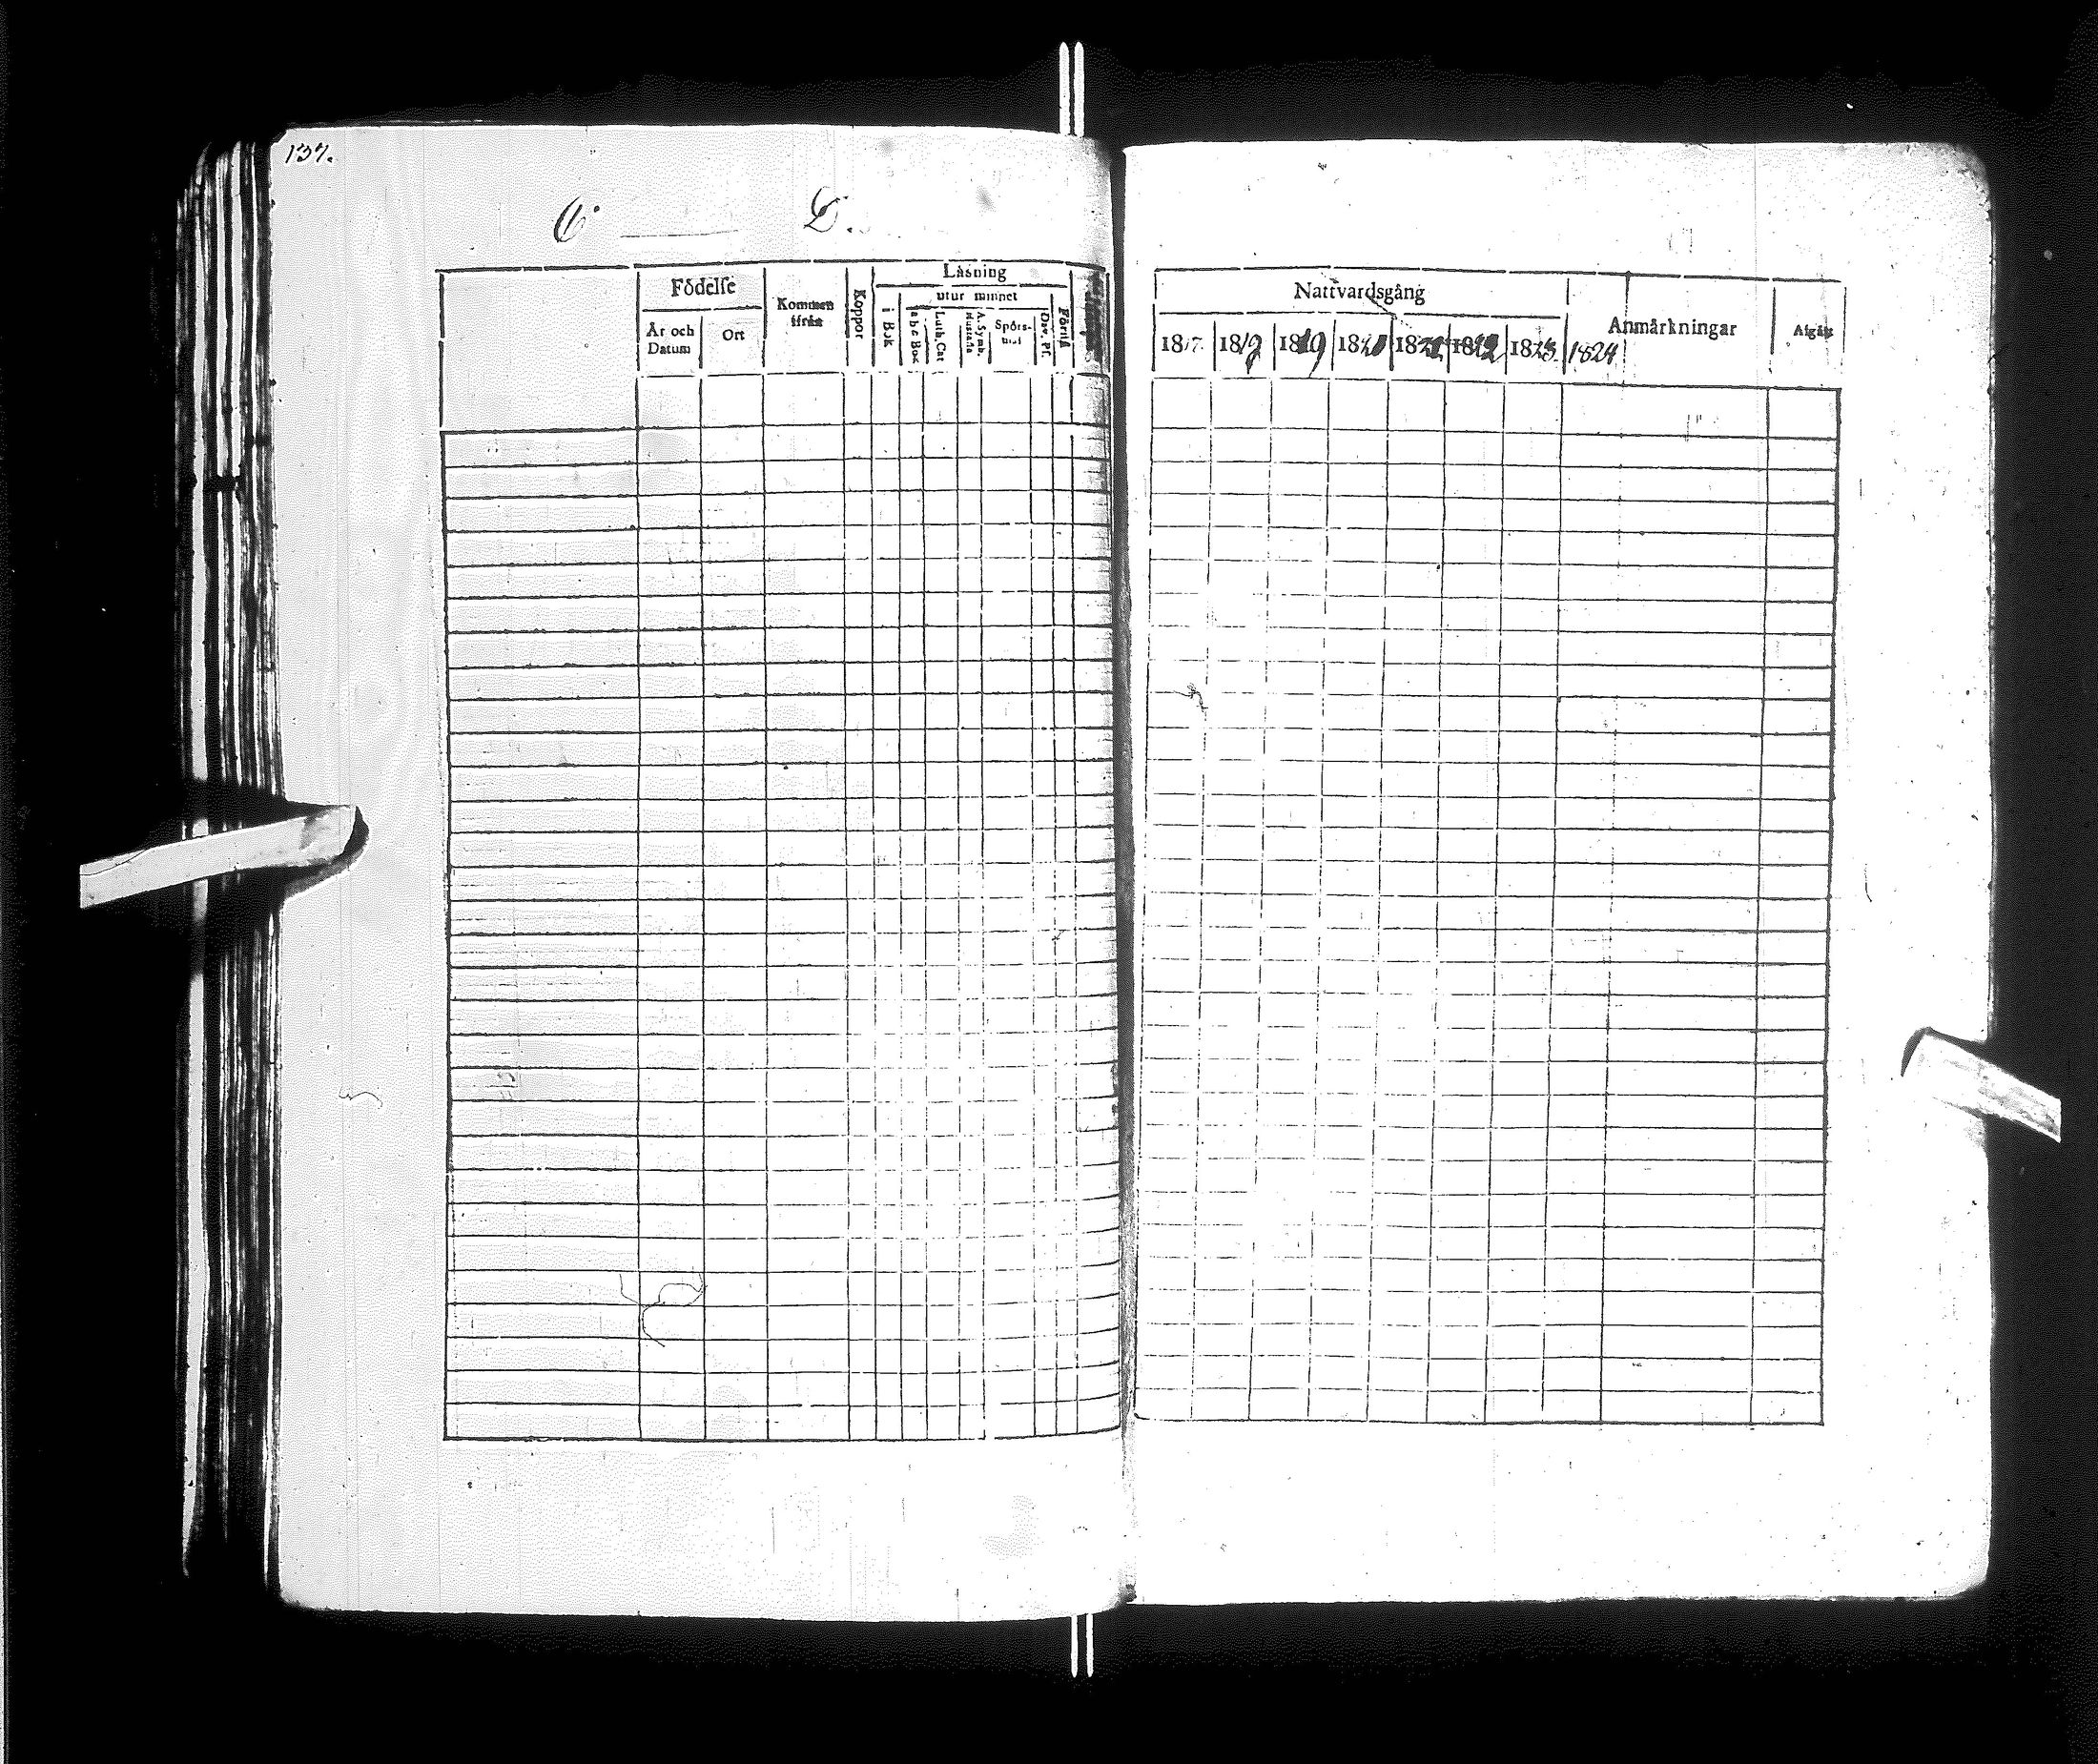 137.
C. D.
Födelse
År och Datum
Ort
Kommen ifrån
Koppor
Läsning
i Bok
utur minnet
a b c Bok
Luth. Cat
A. Symb. Hustafla
Spörsmål
Dav. Ps.
Förstå
Nattvardsgång
1817. 1818 1819 1820 1821 1822 1823. 1824
Anmärkningar
Afgått